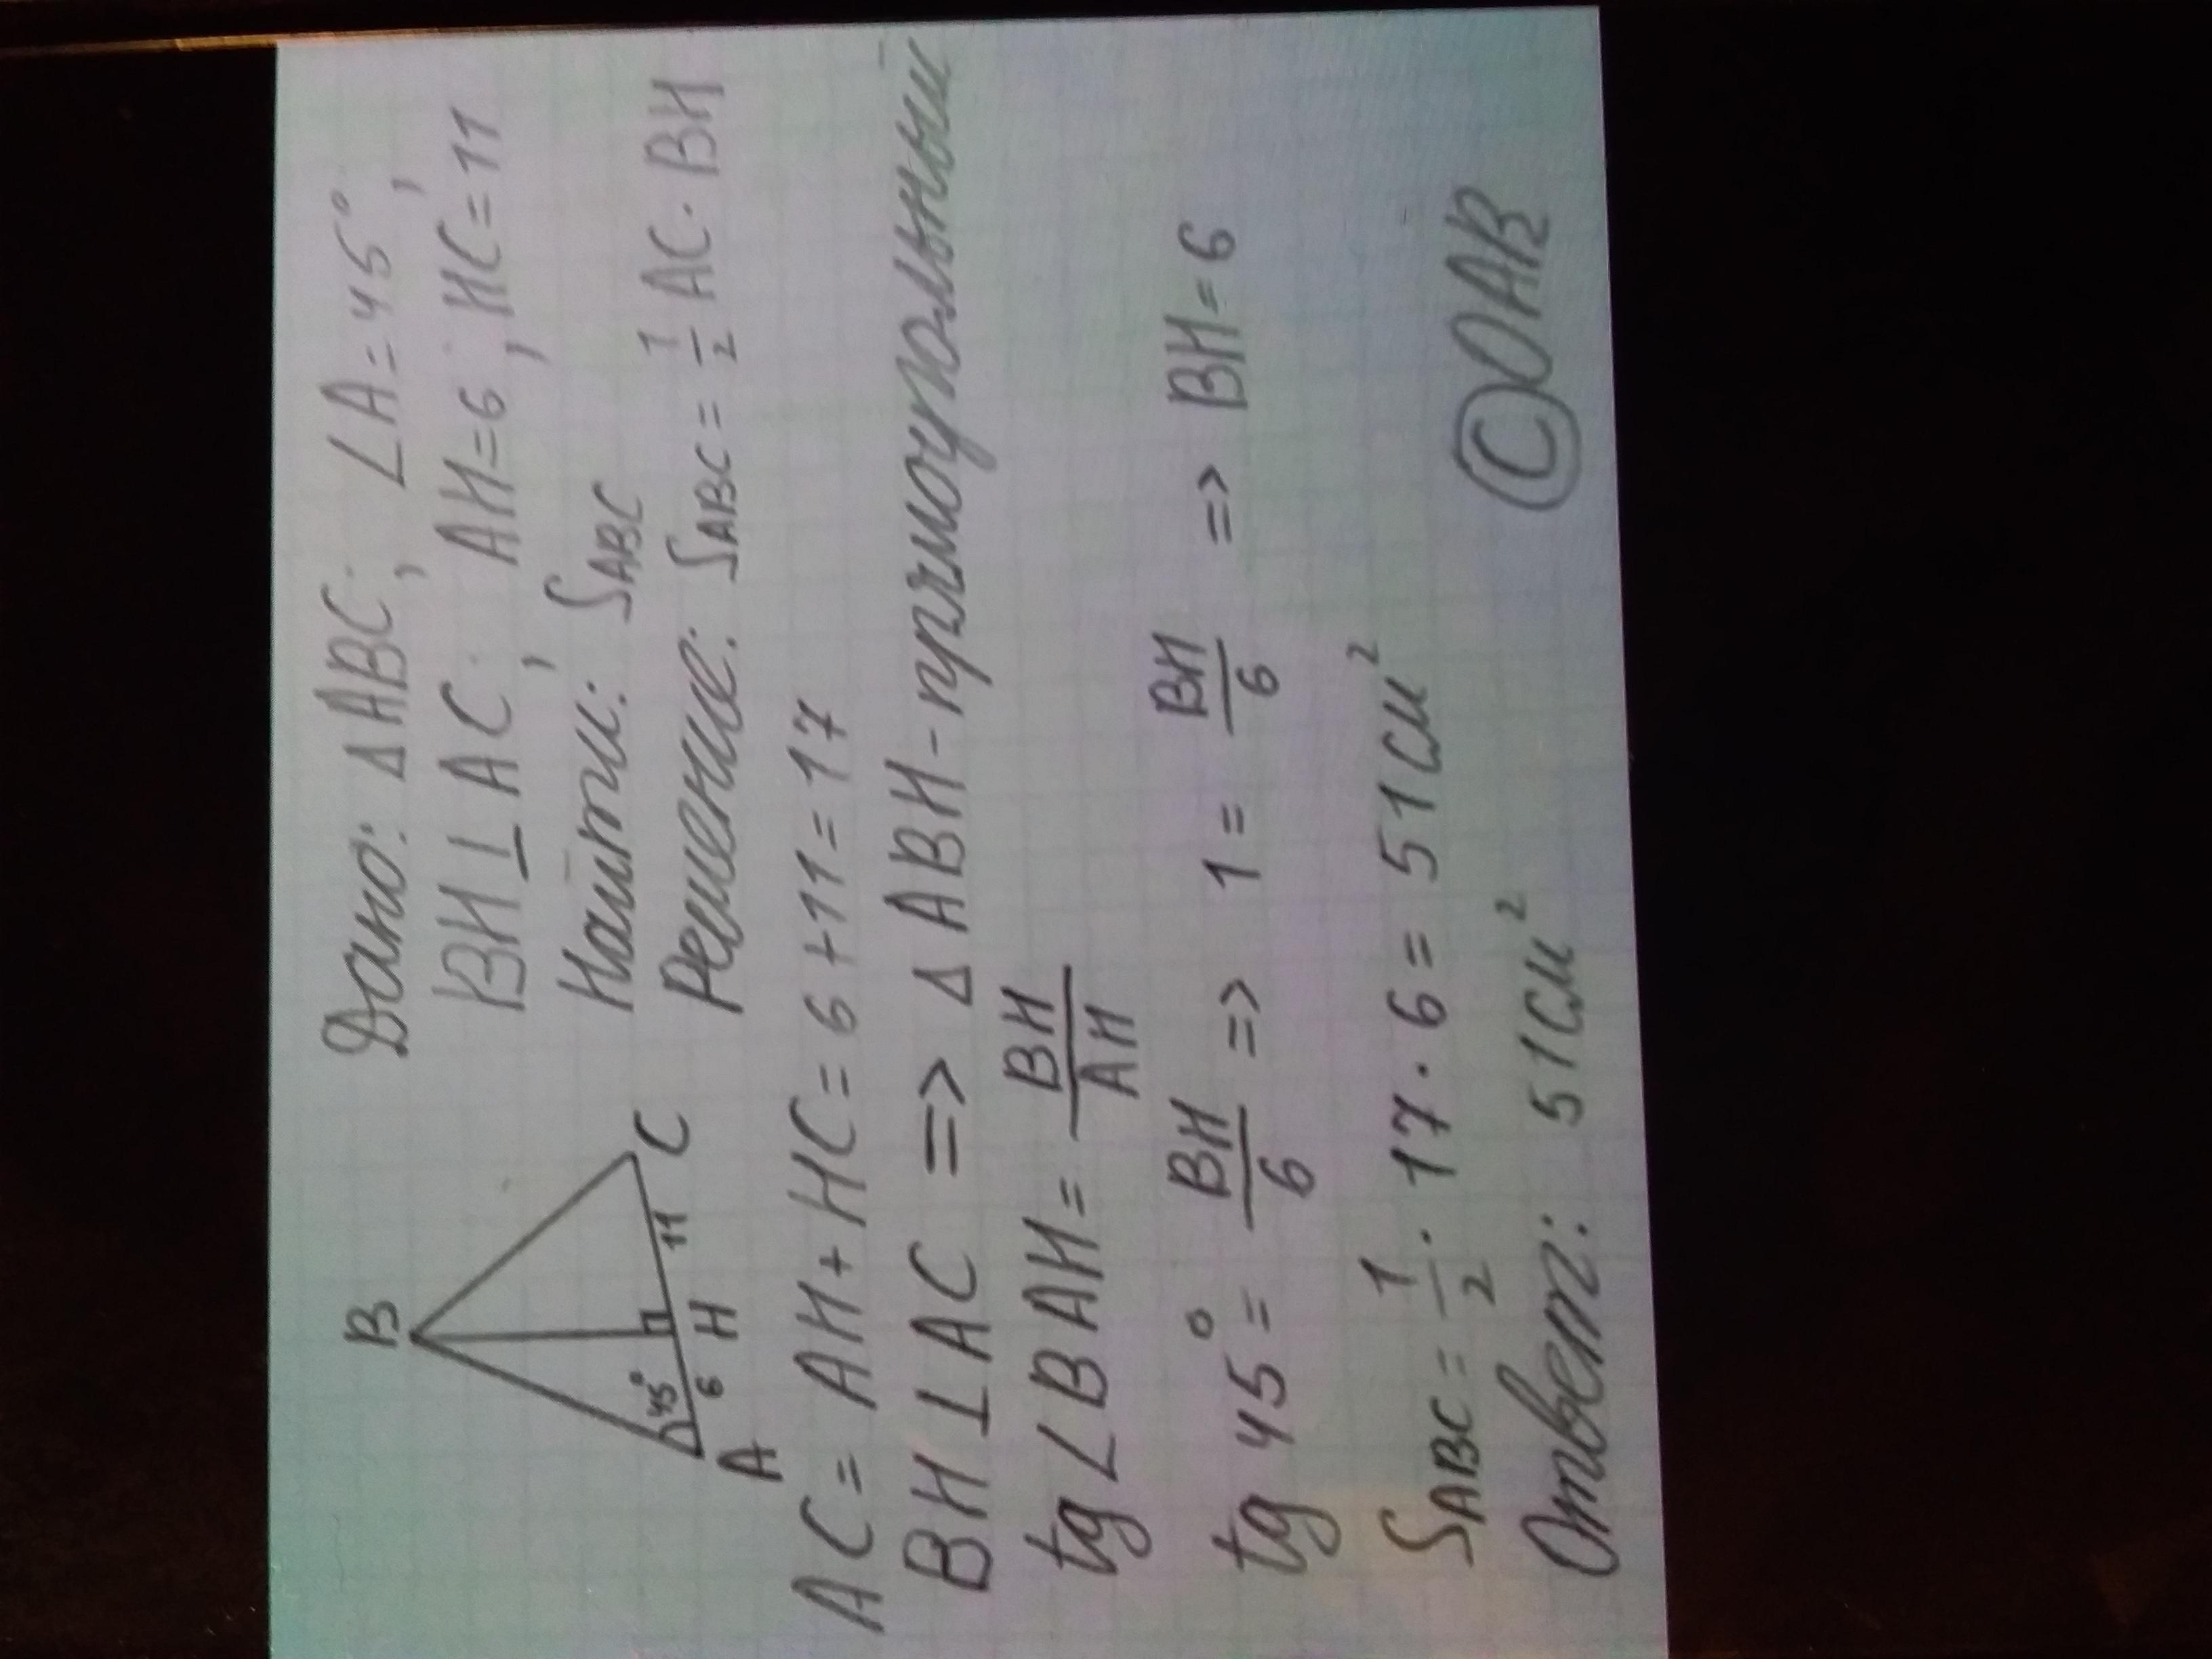 Дано: Δ ABC; ∠A=45°;
BH⊥AC; AH=6; HC=11
Найти: S ABC
Решение: S ABC = 1/2 AC · BH
B
45°
6
11
A
H
C
AC = AH + HC = 6 + 11 = 17
BH ⊥ AC => Δ ABH - прямоугольный
tg ∠BAH = BH/AH
tg 45° = BH/6 => 1 = BH/6 => BH = 6
S ABC = 1/2 · 17 · 6 = 51 см²
Ответ: 51 см²
© OAB